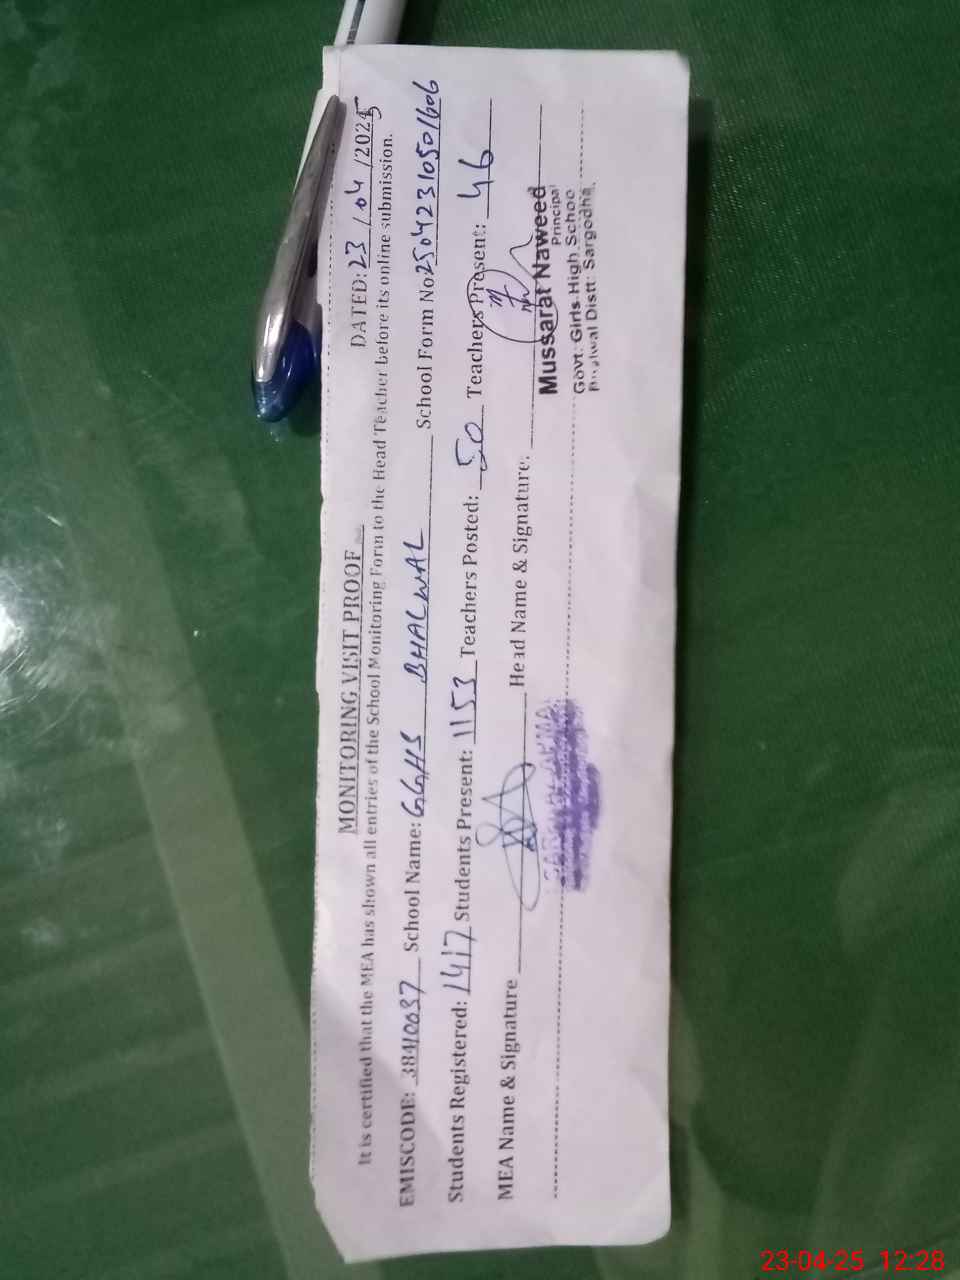 MONITORING VISIT PROOF
DATED: 23/04/2025
It is certified that the MEA has shown all entries of the School Monitoring Form to the Head Teacher before its online submission.
EMISCODE: 38410037 School Name: GGHS BHALWAL School Form No: 25042310501606
Students Registered: 1417 Students Present: 1153 Teachers Posted: 50 Teachers Present: 46
MEA Name & Signature Head Name & Signature:
Mussarat Naweed
Principal
Govt: Girls High Schoo
Bhalwal Distt: Sargodha.
23-04-25 12:28